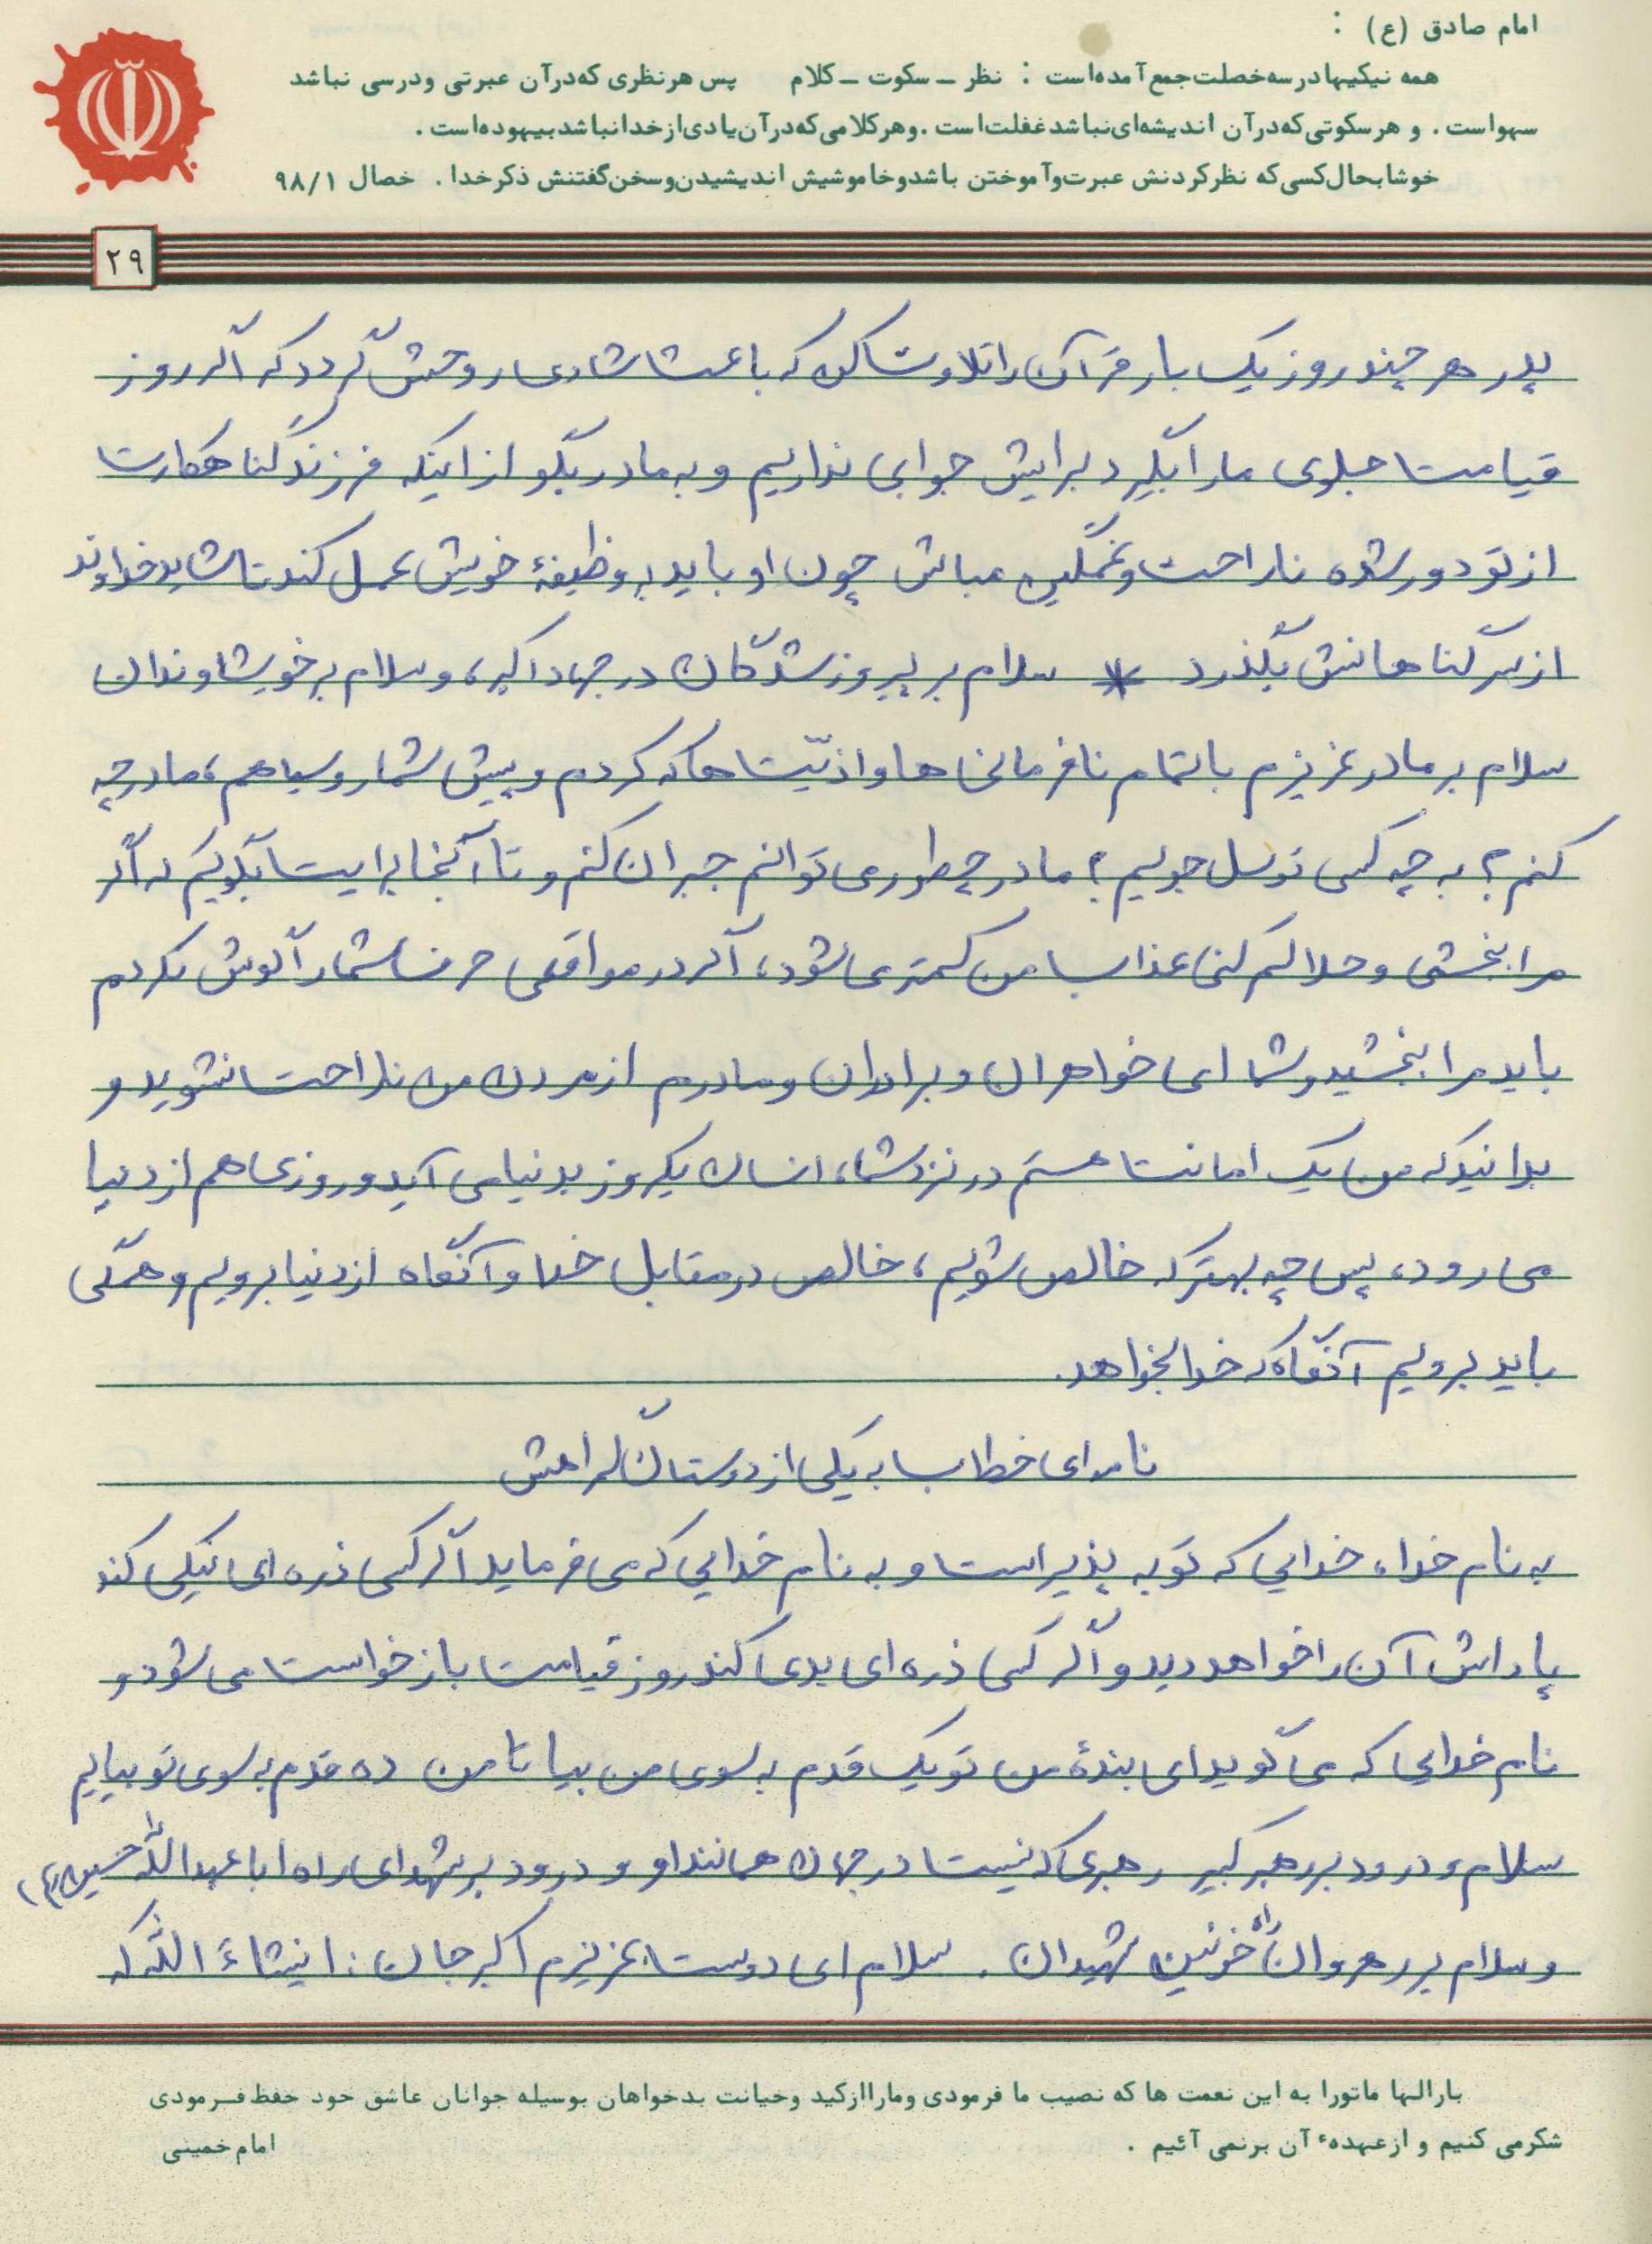 امام صادق (ع) :
همه نیکیها در سه خصلت جمع آمده است : نظر ـ سکوت ـ کلام پس هر نظری که در آن عبرتی و درسی نباشد
سهو است . و هر سکوتی که در آن اندیشه‌ای نباشد غفلت است . و هر کلامی که در آن یادی از خدا نباشد بیهوده است .
خوشا بحال کسی که نظر کردنش عبرت و آموختن باشد و خاموشیش اندیشیدن و سخن گفتنش ذکر خدا . خصال ۹۸/۱
۲۹
پدر هر چند روز یک بار قرآن را تلاوت کن که باعث شادی روحش گردد که اگر روز
قیامت جلوی ما را بگیرد برایش جوابی نداریم و به مادر بگو از اینکه فرزند گناهکارت
از تو دور شده ناراحت و غمگین مباش چون او باید به وظیفهٔ خویش عمل کند تا شاید خداوند
از سر گناهانش بگذرد * سلام بر پیروز شدگان در جهاد اکبر، و سلام بر خویشاوندان
سلام بر مادر عزیزم با تمام نافرمانی ها و اذیّت ها که کردم و پیش شما روسیاهم، مادر چه
کنم؟ به چه کسی توسل جویم؟ مادر چطور می توانم جبران کنم و تا آنجا برایت بگویم که اگر
مرا بخشی و حلالم کنی عذاب من کمتر می شود، اگر در مواقعی حرف شما را گوش نکردم
باید مرا ببخشید و شما ای خواهران و برادران و مادرم از مردن من ناراحت نشوید و
بدانید که من یک امانت هستم در نزد شما، انسان یکروز بدنیا می آید و روزی هم از دنیا
می رود، پس چه بهتر که خالص شویم، خالص در مقابل خدا و آنگاه از دنیا برویم و همگی
باید برویم آنگاه که خدا بخواهد.
نامه ای خطاب به یکی از دوستان گمراهش
به نام خدا، خدایی که توبه پذیر است و به نام خدایی که می فرماید اگر کسی ذره ای نیکی کند
پاداش آن را خواهد دید و اگر کسی ذره ای بدی کند روز قیامت بازخواست می شود و
نام خدایی که می گوید ای بندهٔ من تو یک قدم به سوی من بیا تا من ده قدم به سوی تو بیایم
سلام و درود بر رهبر کبیر رهبری که نیست در جهان همانند او و درود بر شهدای راه ابا عبدالله حسین (ع)
و سلام بر رهروان راه خونین شهیدان . سلام ای دوست عزیزم اکبر جان : انیشاءَ الله که
بارالها ما تورا به این نعمت ها که نصیب ما فرمودی و ما را از کید و خیانت بدخواهان بوسیله جوانان عاشق خود حفظ فرمودی
شکر می کنیم و از عهدهٔ آن بر نمی آئیم .
امام خمینی